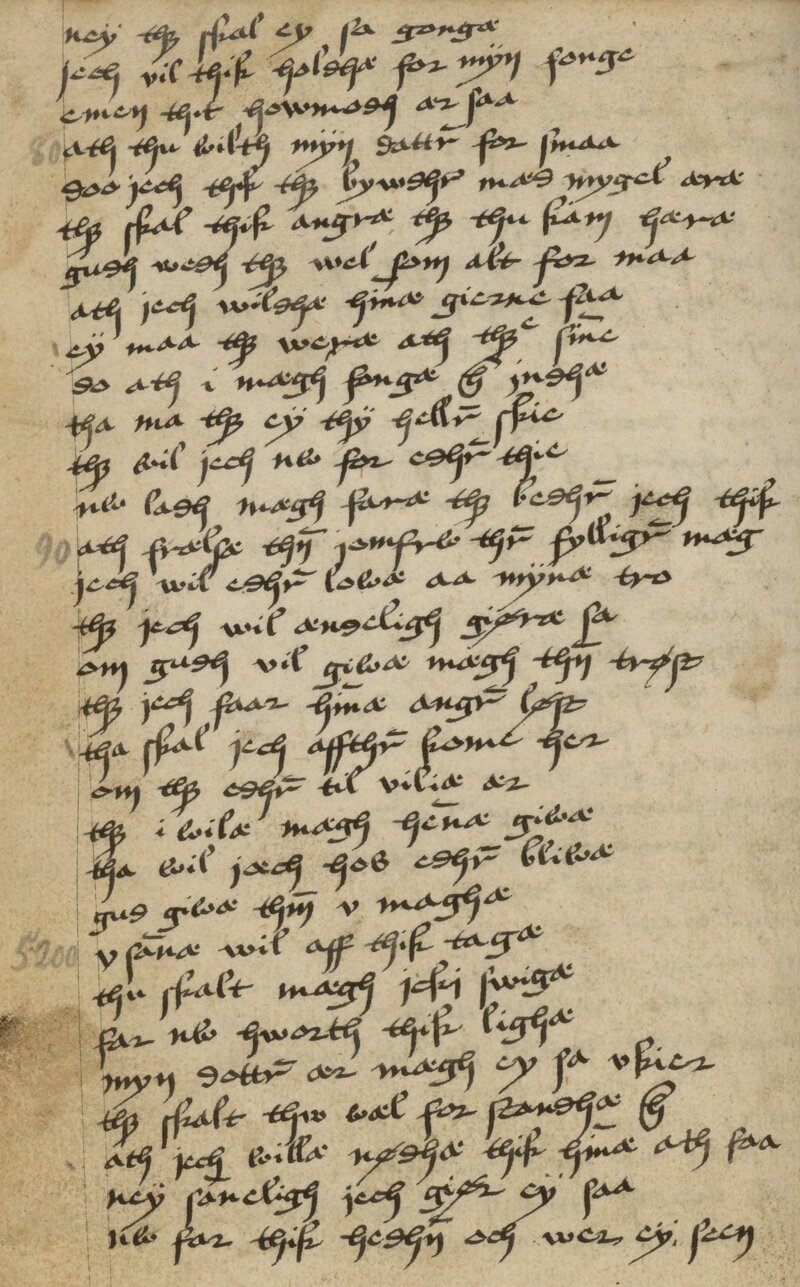 neÿ thꝫ skal ey sa gongæ
jech vil thik holdhæ for mÿn fonge
emen thit howmodh ær saa
80 ath thu wilth mÿn dattr̄ for smaa
doo jech thik thꝫ bywdhr̄ mæd mygel æræ
thꝫ skal thik angræ thꝫ thu kam hæræ
gudh wedh thꝫ wel som alt for maa
ath jech wildhæ hinæ gierne faa
eÿ maa thꝫ weræ ath thꝫe sin̄e
do ath i mægh fongæ h̄ jndhæ
tha ma thꝫ eÿ thÿ hellr̄ skie
thꝫ wil jech nw for edhr̄ thie
nw ladh mægh faræ thꝫ bedhr̄ jech thik
90 ath frælsæ thn̄ jomfrw thr̄ fylligr̄ mæg
jech wil edhr̄ lowæ aa mÿnæ tro
thꝫ jech wil ændeligh giøræ sa
om gudh vil giwæ mægh thn̄ trøst
thꝫ jech faar hin̄æ angr̄ løst
tha skal jech affthr̄ kome her
om thꝫ edhr̄ til viliæ ær
thꝫ i wilæ mægh hen̄æ giwæ
tha wil jæch hos edhr̄ bliwæ
gud giwæ thm̄ v maghæ
5200 v san̄æ wil aff thik tagæ
thu skalt mægh jcki swigæ
far nw hworth thik lighæ
myn dottr̄ ær mægh ey sa vkier
thꝫ skalt thw wæl for standhæ h̄
ath jech willæ nødhæ thik hin̄æ ath faa
neÿ san̄eligh jech giør eÿ saa
nw far thik hedhn̄ och wer ey seen